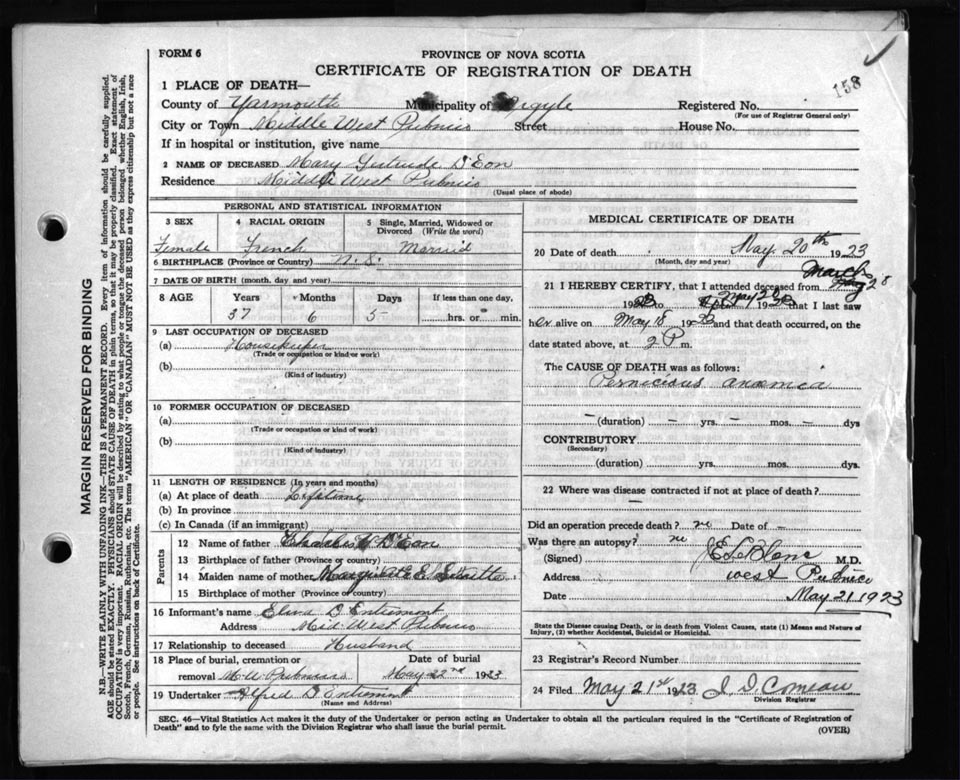 FORM 6
PROVINCE OF NOVA SCOTIA
CERTIFICATE OF REGISTRATION OF DEATH
158
1 PLACE OF DEATH—
County of Yarmouth Municipality of Argyle Registered No.
(For use of Registrar General only)
City or Town Middle West Pubnico Street House No.
If in hospital or institution, give name
2 NAME OF DECEASED Mary Gertrude D'Eon
Residence Middle West Pubnico
(Usual place of abode)
PERSONAL AND STATISTICAL INFORMATION
3 SEX 4 RACIAL ORIGIN 5 Single, Married, Widowed or Divorced (Write the word)
Female French Married
6 BIRTHPLACE (Province or Country) N.S.
7 DATE OF BIRTH (month, day and year)
8 AGE Years Months Days If less than one day,
37 6 5 hrs. or min.
9 LAST OCCUPATION OF DECEASED
(a) Housekeeper
(Trade or occupation or kind or work)
(b)
(Kind of industry)
10 FORMER OCCUPATION OF DECEASED
(a)
(Trade or occupation or kind of work)
(b)
(Kind of industry)
11 LENGTH OF RESIDENCE (In years and months)
(a) At place of death Lifetime
(b) In province
(c) In Canada (if an immigrant)
Parents
12 Name of father Charles D'Eon
13 Birthplace of father (Province or country)
14 Maiden name of mother E.
15 Birthplace of mother (Province or country)
16 Informant's name D Entremont
Address Mid. West Pubnico
17 Relationship to deceased Husband
18 Place of burial, cremation or Date of burial
removal M. W. Pubnico May 22nd 1923
19 Undertaker Alfred D Entremont
(Name and Address)
MEDICAL CERTIFICATE OF DEATH
20 Date of death May 20th 1923
(Month, day and year)
March
21 I HEREBY CERTIFY, that I attended deceased from 28
19 to May 19 that I last saw
her alive on May 18 1923 and that death occurred, on the
date stated above, at 2 P m.
The CAUSE OF DEATH was as follows:
Pernicious anaemia
— (duration) — yrs. — mos. — dys
CONTRIBUTORY
(Secondary)
(duration) yrs. mos. dys.
22 Where was disease contracted if not at place of death?
Did an operation precede death? no Date of —
Was there an autopsy? no
(Signed) LeBlanc M.D.
Address West Pubnico
Date May 21 1923
State the Disease causing Death, or in death from Violent Causes, state (1) Means and Nature of
Injury, (2) whether Accidental, Suicidal or Homicidal.
23 Registrar's Record Number
24 Filed May 21st 1923 Comeau
Division Registrar
SEC. 46—Vital Statistics Act makes it the duty of the Undertaker or person acting as Undertaker to obtain all the particulars required in the "Certificate of Registration of
Death" and to fyle the same with the Division Registrar who shall issue the burial permit. (OVER)
MARGIN RESERVED FOR BINDING
N.B.—WRITE PLAINLY WITH UNFADING INK—THIS IS A PERMANENT RECORD. Every item of information should be carefully supplied.
AGE should be stated EXACTLY. PHYSICIANS should STATE CAUSE OF DEATH in plain terms, so that it may be properly classified. Exact statement of
OCCUPATION is very important. RACIAL ORIGIN will be described by stating to what people or tongue the deceased person belonged whether English, Irish,
Scotch, French, German, Russian, Ruthenian, etc. The terms "AMERICAN" OR "CANADIAN" MUST NOT BE USED as they express citizenship but not a race
or people. See instructions on back of Certificate.